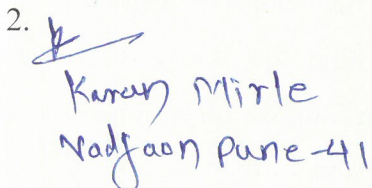 2.
Karan Mirle
Vadgaon Pune-41